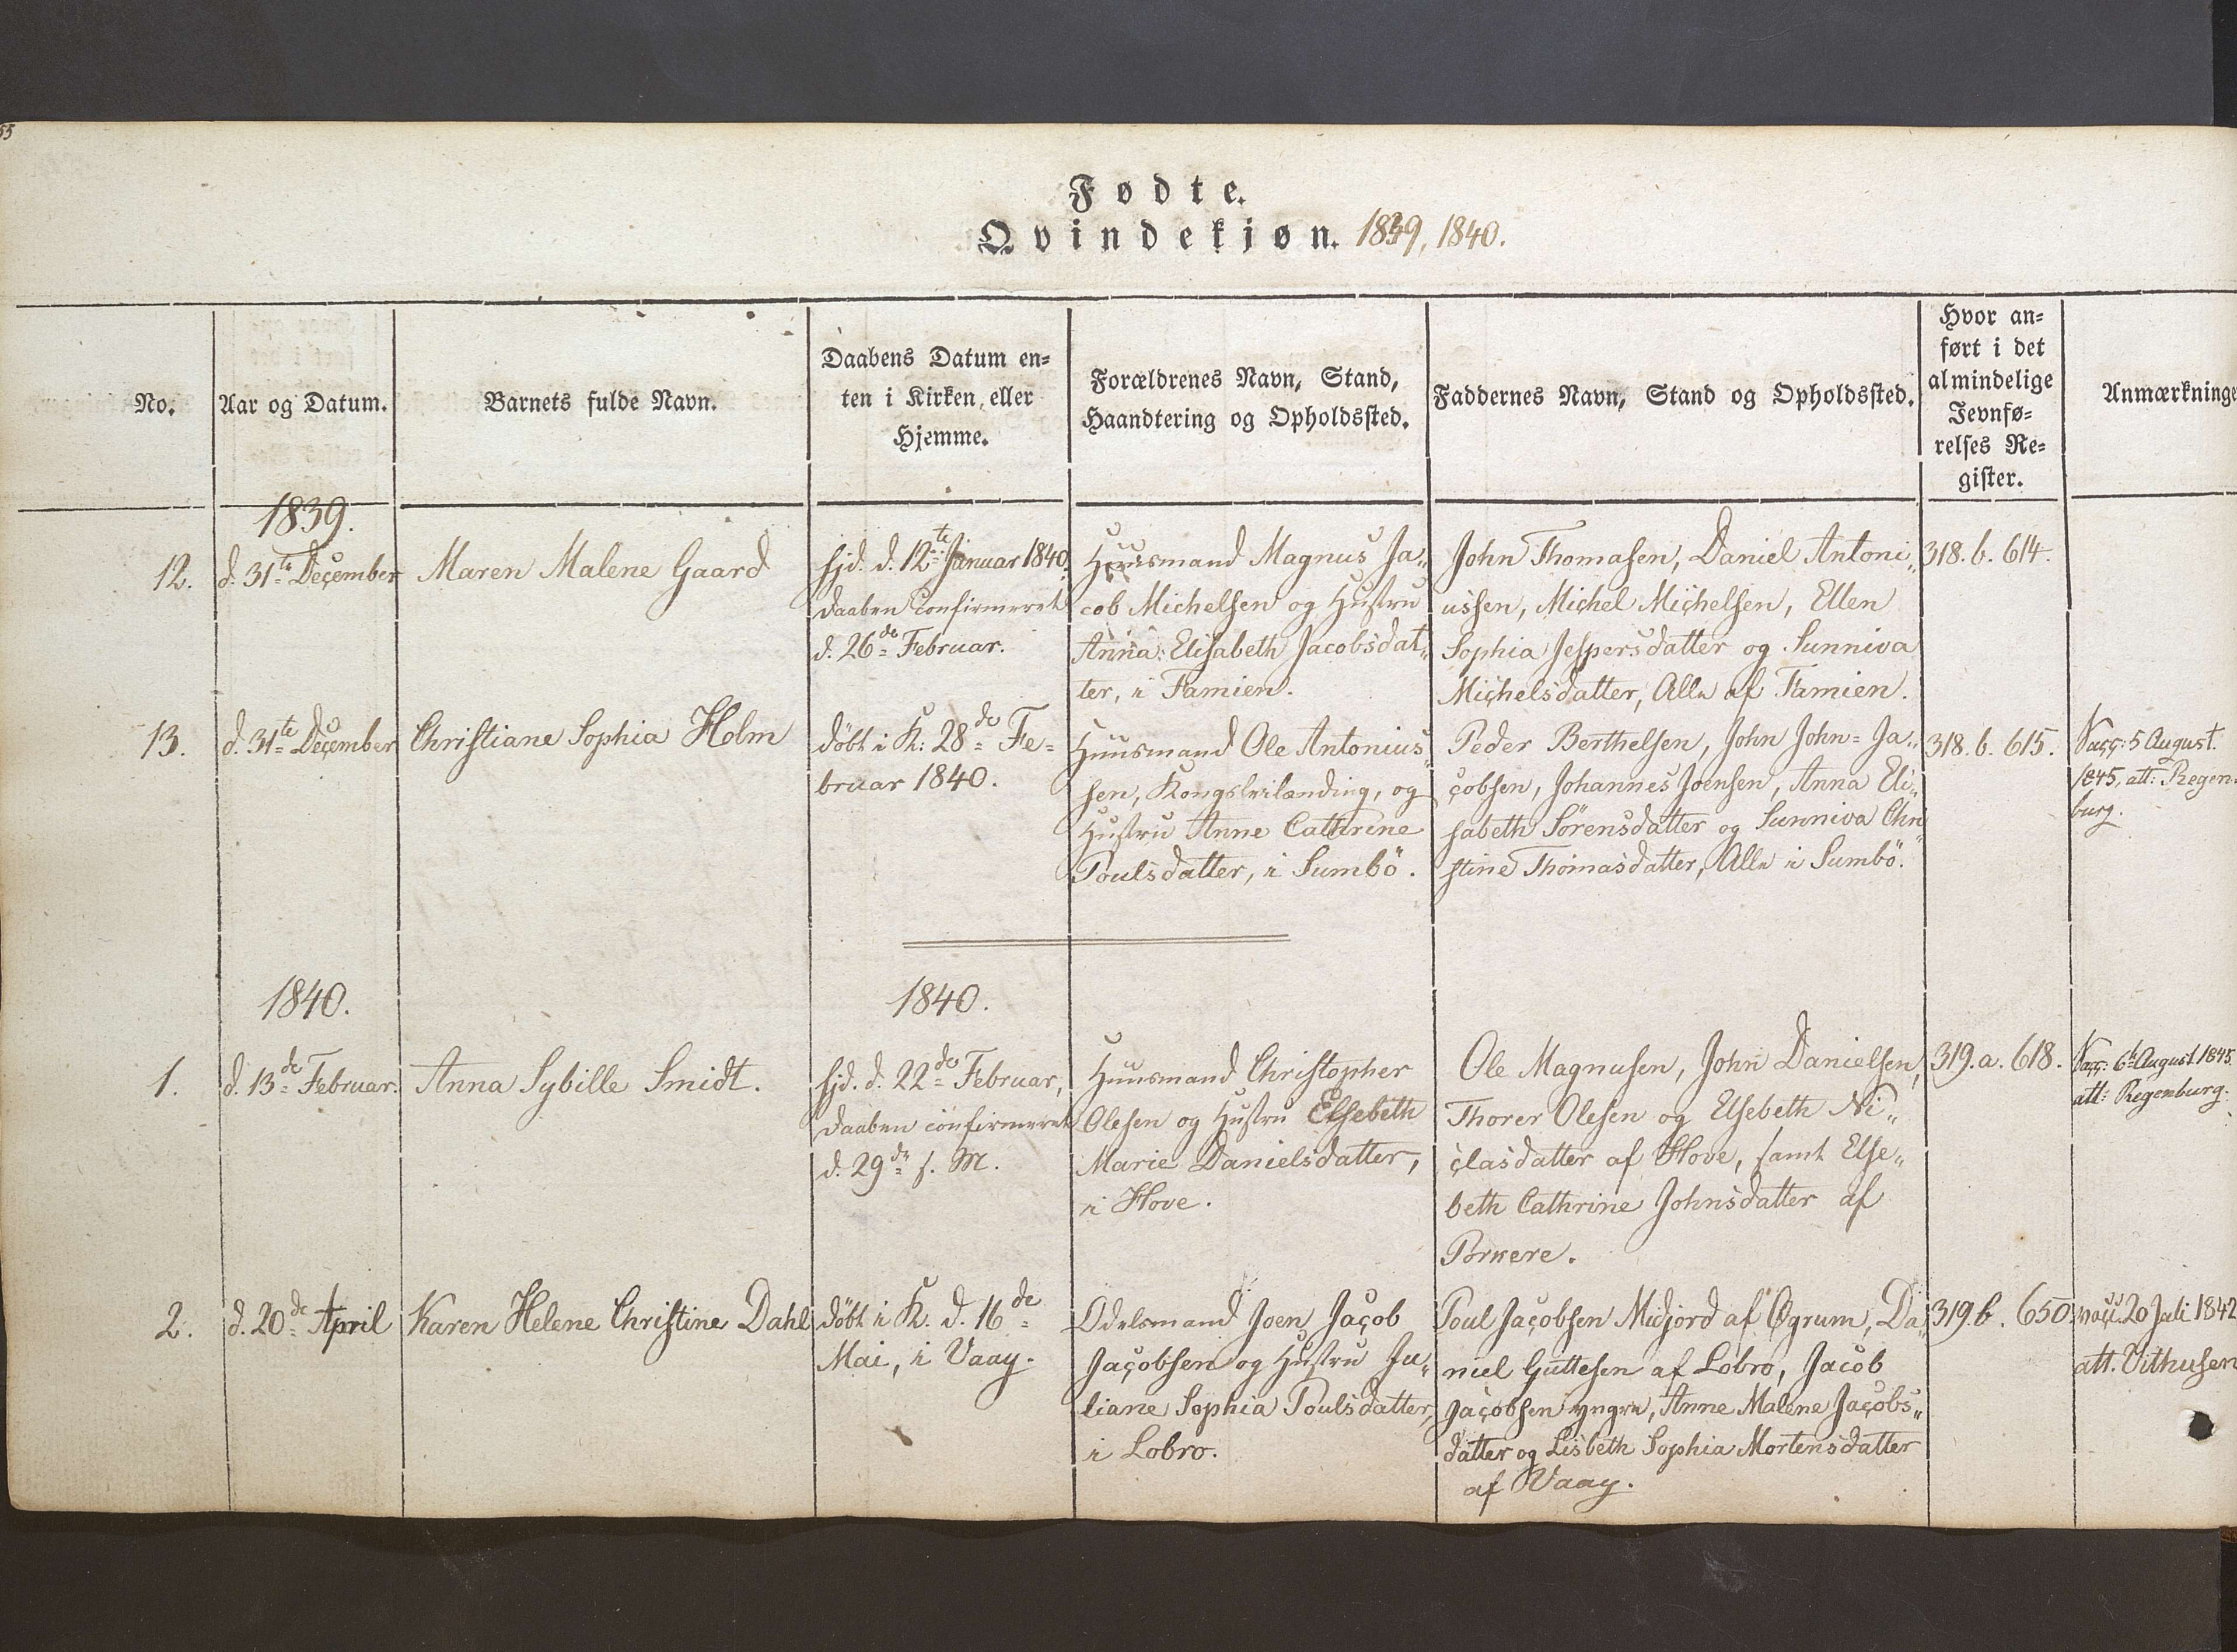 55
Fødte.
Qvindekjøn. 1839, 1840.
No.
Aar og Datum.
Barnets fulde Navn.
Daabens Datum en=
ten i Kirken eller
Hjemme.
Forældrenes Navn, Stand,
Haandtering og Opholdssted.
Faddernes Navn, Stand og Opholdssted.
Hvor an=
ført i det
almindelige
Jevnfø=
relses Re=
gister.
Anmærkninge
1839.
12.
d. 31te December
Maren Malene Gaard
hjd. d. 12te Januar 1840.
Daaben confirmeret
d. 26de Februar.
Huusmand Magnus Ja„
cob Michelsen og Hustru
Anna Elisabeth Jacobsdat„
ter, i Famien.
John Thomasen, Daniel Antoni„
ussen, Michel Michelsen, Ellen
Sophia Jespersdatter og Sunniva
Michelsdatter, Alle af Famien.
318. b. 614.
13.
d. 31te December
Christiane Sophia Holm
döbt i K: 28de Fe=
bruar 1840.
Huusmand Ole Antonius„
sen, Kongsleilænding, og
Hustru Anne Cathrine
Poulsdatter, i Sumbö.
Peder Berthelsen, John John=Ja„
cobsen, Johannes Joensen, Anna Eli„
sabeth Sörensdatter og Sunniva Chri„
stine Thomasdatter, Alle i Sumbö.
318. b. 615.
Vacc: 5 August
1845, att: Regen„
burg.
1840.
1840.
1.
d. 13de Februar.
Anna Sybille Smidt.
hjd. d. 22de Februar,
Daaben confirmeret
d. 29de s. M.
Huusmand Christopher
Olesen og Hustru Elsebeth
Marie Danielsdatter,
i Hove.
Ole Magnusen, John Danielsen,
Thorer Olesen og Elsebeth Ni„
clasdatter af Hove, samt Else„
beth Cathrine Johnsdatter af
Porkere.
319. a. 618.
Vacc: 6te August 1845
att: Regenburg.
2.
d. 20de April
Karen Helene Christine Dahl
döbt i K. d. 16de
Mai, i Vaag.
Odelsmand Joen Jacob
Jacobsen og Hustru Ju„
liane Sophia Poulsdatter,
i Lobro.
Poul Jacobsen Midjord af Øgrum, Da„
niel Guttesen af Lobro, Jacob
Jacobsen yngre, Anne Malene Jacobs„
datter og Lisbeth Sophia Mortensdatter
af Vaag.
319. b. 650.
vacc. 20 Juli 1842
att. Vithusen